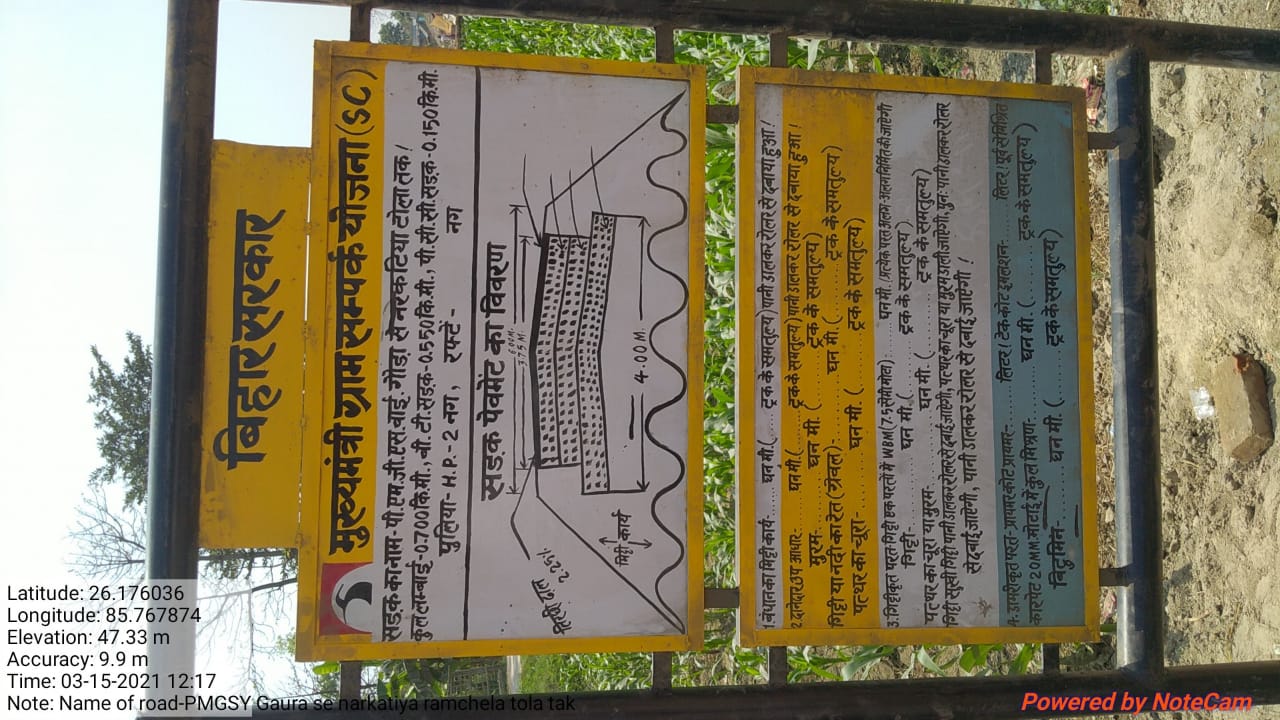 बिहार सरकार
मुख्यमंत्री ग्राम सम्पर्क योजना (SC)
सड़क का नाम- पी.एम.जी.एस.वाई. गौड़ा से नरकटिया टोला तक।
कुल लम्बाई-0.700 कि.मी., बी.टी.सड़क-0.550 कि.मी., पी.सी.सी.सड़क-0.150 कि.मी.
पुलिया- H.P.- 2 नग, रफ्टें - नग
सड़क पेवमेंट का विवरण
6.00M.
3.75M.
2.25%
मिट्टी कार्य
4.00 M.
1. बंधान का मिट्टी कार्य- घन मी.( ट्रक के समतुल्य) पानी डालकर रोलर से दबाया हुआ।
2. दानेदार उप आधार:- घन मी.( ट्रक के समतुल्य) पानी डालकर रोलर से दबाया हुआ।
मुरम:- घन मी ( ट्रक के समतुल्य)
गिट्टी या नदी का रेत (ग्रेवल)- घन मी ( ट्रक के समतुल्य)
पत्थर का चूरा:- घन मी. ( ट्रक के समतुल्य)
3. गिट्टीकृत परत- गिट्टी एक परत में WBM (7.5 सेमी मोटा) घन मी. (प्रत्येक परत अलग-अलग निर्मित की जाएगी
गिट्टी:- घन मी.( ट्रक के समतुल्य)
पत्थर का चूरा या मुरम:- घन मी ( ट्रक के समतुल्य)
गिट्टी सूखी गिट्टी पानी डालकर रोलर से दबाई जाएगी, पत्थर का चूरा या मुरम डाली जाएगी, पुनः पानी डालकर रोलर
से दबाई जाएगी, पानी डालकर रोलर से दबाई जाएगी।
4. डामरीकृत परत- प्रायमर कोट प्रायमर- लिटर। टेक कोट इमलशन:- लिटर। पूर्व से मिश्रित
कारपेट 20MM मोटाई में कुल मिश्रण:- घन मी. ( ट्रक के समतुल्य)
बिटुमिन- घन मी. ( ट्रक के समतुल्य)
Latitude: 26.176036
Longitude: 85.767874
Elevation: 47.33 m
Accuracy: 9.9 m
Time: 03-15-2021 12:17
Note: Name of road-PMGSY Gaura se narkatiya ramchela tola tak
Powered by NoteCam